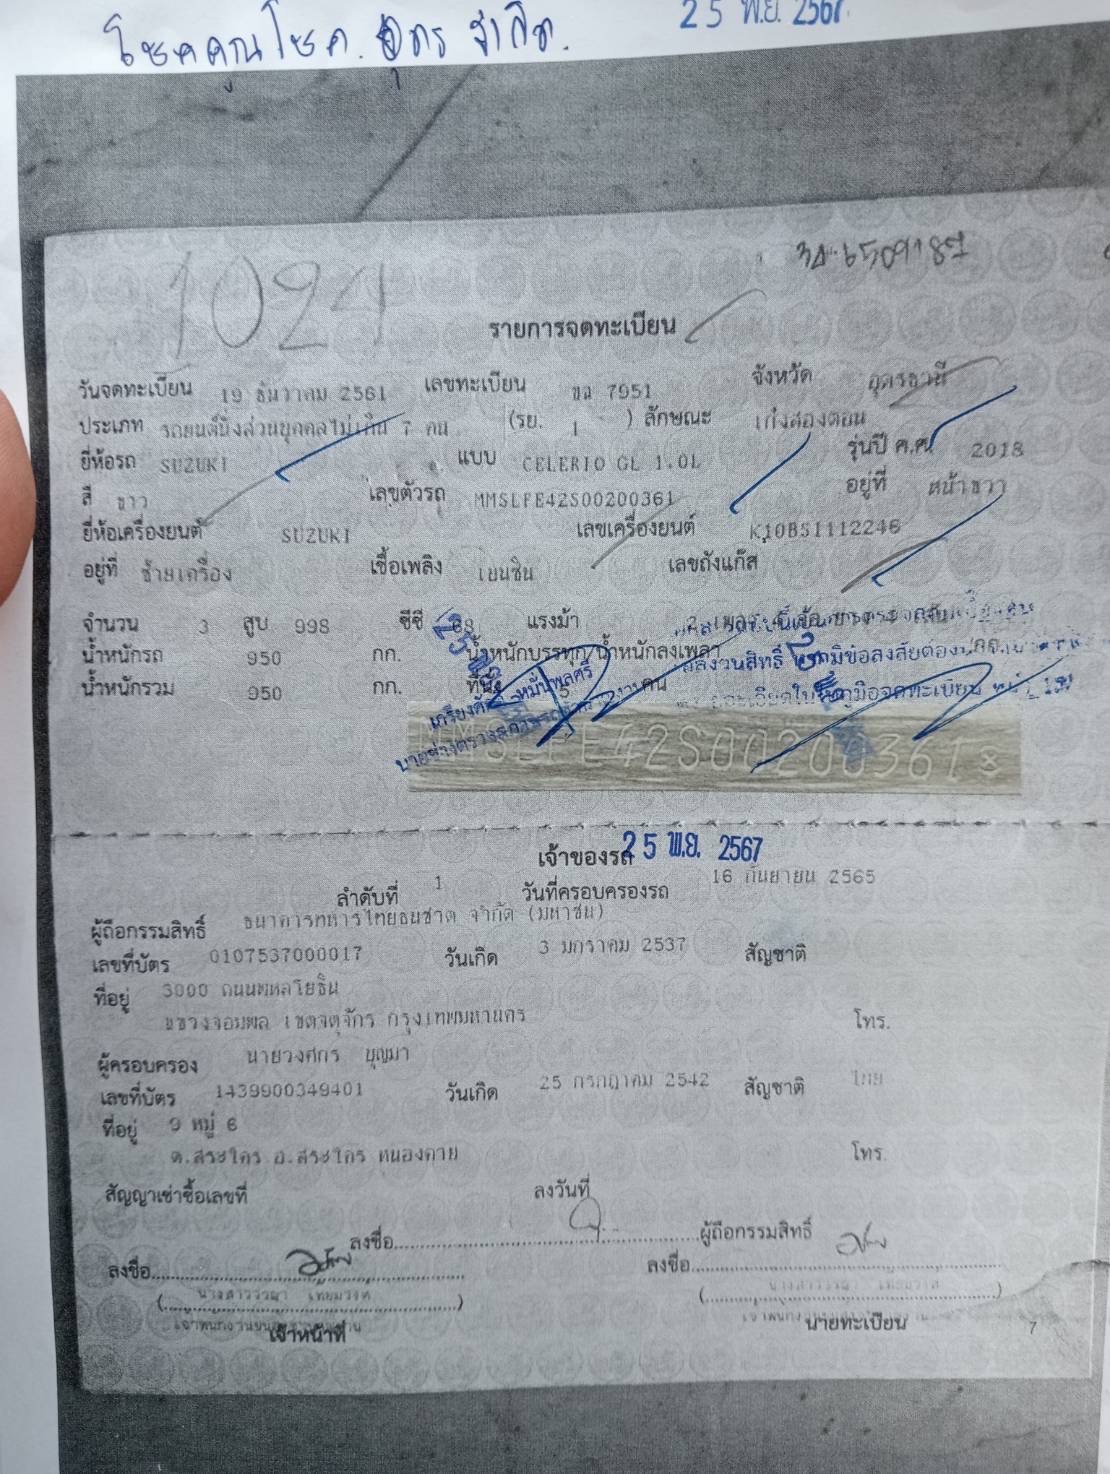 โชคคูณโชค อุดร จำกัด.
25 พ.ย. 2567
1024
รายการจดทะเบียน
วันจดทะเบียน 19 ธันวาคม 2561 เลขทะเบียน 7951 จังหวัด อุดรธานี
ประเภท รถยนต์นั่งส่วนบุคคลไม่เกิน 7 คน (รย. 1 ) ลักษณะ เก๋งสองตอน
ยี่ห้อรถ SUZUKI แบบ CELERIO GL 1.0L รุ่นปี ค.ศ. 2018
สี ขาว เลขตัวรถ MMSLFE42S00200361 อยู่ที่ หน้าขวา
ยี่ห้อเครื่องยนต์ SUZUKI เลขเครื่องยนต์ K10B51112246
อยู่ที่ ซ้ายเครื่อง เชื้อเพลิง เบนซิน เลขถังแก๊ส
จำนวน 3 สูบ 998 ซีซี 68 แรงม้า 2 เพลา 4 ล้อ ยาง 4 เส้น
น้ำหนักรถ 950 กก. น้ำหนักบรรทุก/น้ำหนักลงเพลา กก.
น้ำหนักรวม 950 กก. ที่นั่ง 5 คน
MMSLFE42S00200361
25 พ.ย. 2567
เจ้าของรถ
ลำดับที่ 1 วันที่ครอบครองรถ 16 กันยายน 2565
ผู้ถือกรรมสิทธิ์ ธนาคารทหารไทยธนชาต จำกัด (มหาชน)
เลขที่บัตร 0107537000017 วันเกิด 3 มกราคม 2537 สัญชาติ
ที่อยู่ 3000 ถนนพหลโยธิน
แขวงจอมพล เขตจตุจักร กรุงเทพมหานคร โทร.
ผู้ครอบครอง นายวงศกร บุญมา
เลขที่บัตร 1439900349401 วันเกิด 25 กรกฎาคม 2542 สัญชาติ ไทย
ที่อยู่ 9 หมู่ 6
ต.สระใคร อ.สระใคร หนองคาย โทร.
สัญญาเช่าซื้อเลขที่ ลงวันที่
ลงชื่อ ผู้ถือกรรมสิทธิ์
ลงชื่อ ลงชื่อ
เจ้าหน้าที่ นายทะเบียน
7